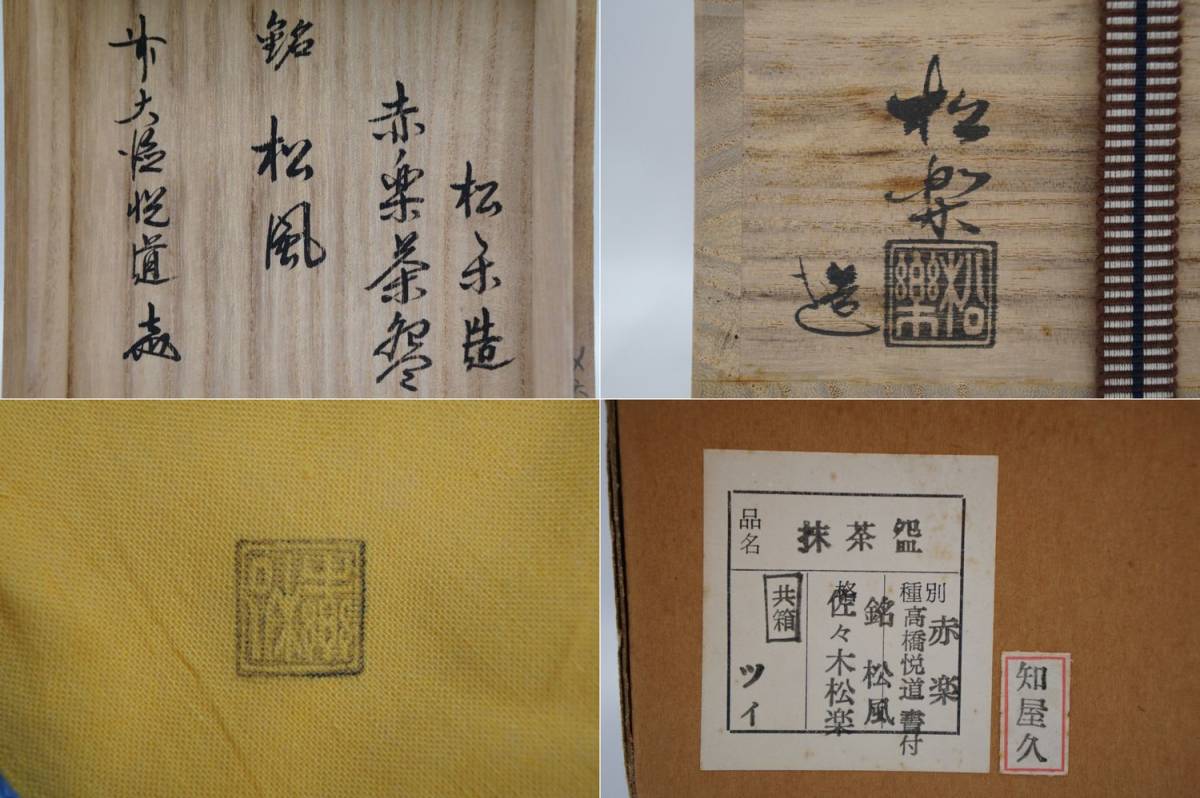 松楽造
赤楽茶盌
銘 松風
前大徳悦道
松楽
松楽
造
品名
抹茶盌
別種
赤楽
高橋悦道 書付
銘 松風
佐々木松楽
共箱
ツイ
知屋久